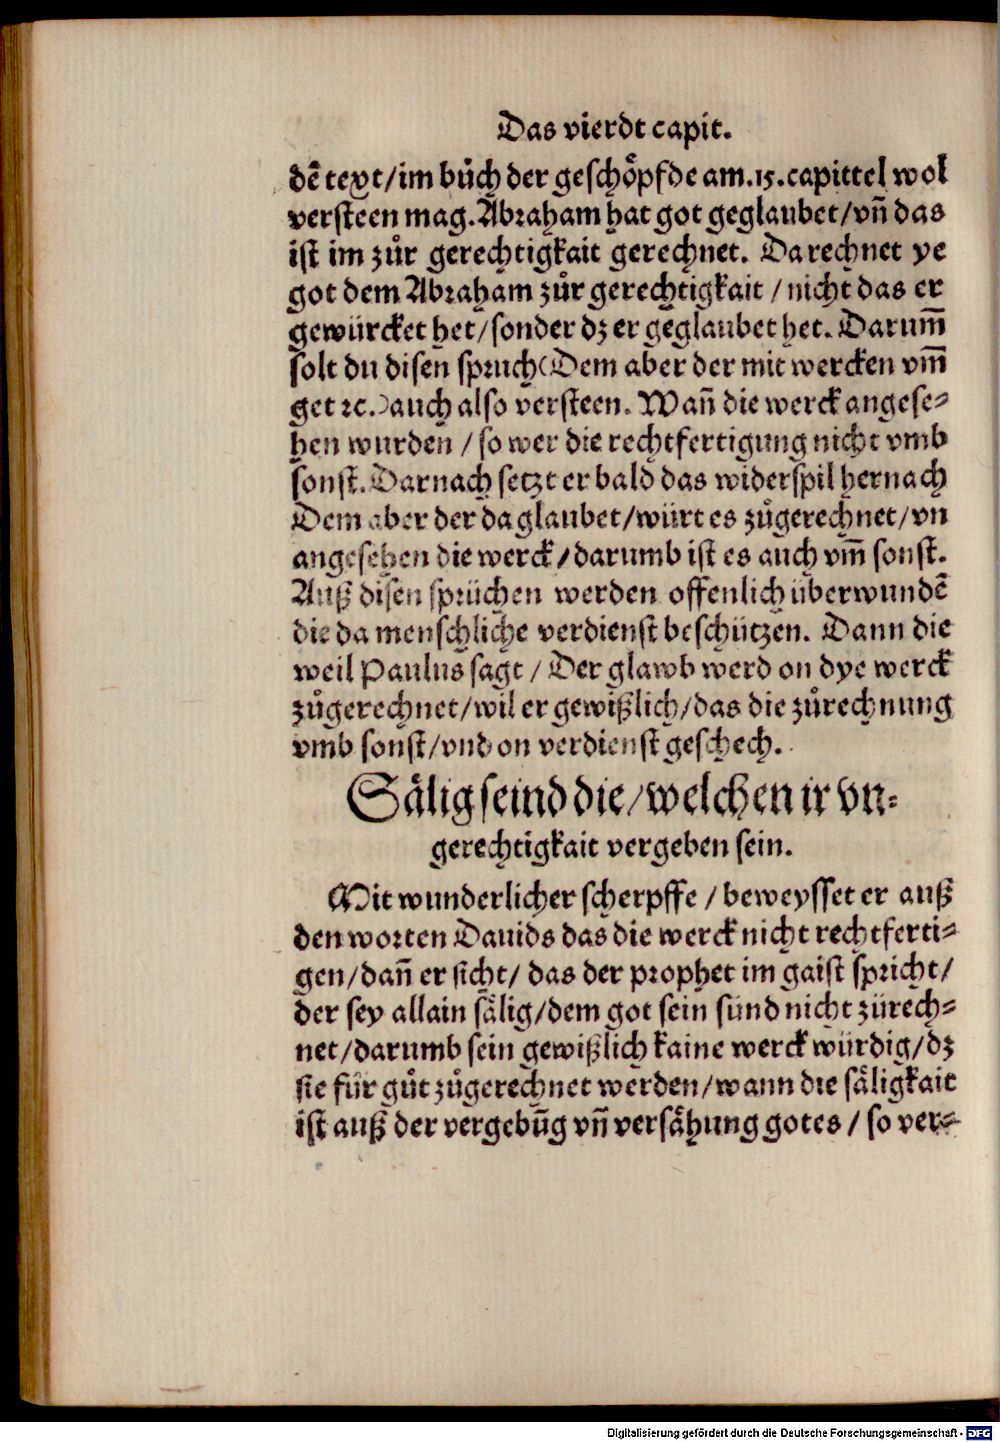 Das vierdt capit.
dē text/im bůch der geschöpfde am.15.capittel wol
versteen mag.Abraham hat got geglaubet/vn̄ das
ist im zůr gerechtigkait gerechnet. Da rechnet ye
got dem Abraham zůr gerechtigkait /nicht das er
gewürcket het/sonder dz er geglaubet het. Darum̄
solt du disen spruch(Dem aber der mit wercken vm̄
get ꝛc.)auch also versteen. Wan̄ die werck angese⸗
hen wurden /so wer die rechtfertigung nicht vmb
sonst.Darnach setzt er bald das widerspil hernach
Dem aber der da glaubet/würt es zůgerechnet/vn
angesehen die werck/darumb ist es auch vm̄ sonst.
Auß disen sprüchen werden offenlich überwundē
die da menschliche verdienst beschützen. Dann die
weil Paulus sagt / Der glawb werd on dye werck
zůgerechnet/wil er gewißlich/das die zůrechnung
vmb sonst/vnd on verdienst geschech.
Sälig seind die/welchen ir vn⸗
gerechtigkait vergeben sein.
Mit wunderlicher scherpffe /beweysset er auß
den worten Dauids das die werck nicht rechtferti⸗
gen/dan̄ er sicht/ das der prophet im gaist spricht/
der sey allain sälig/dem got sein sünd nicht zürech⸗
net/darumb sein gewißlich kaine werck würdig/dz
sie für gůt zůgerechnet werden/wann die säligkait
ist auß der vergebūg vn̄ versähung gotes /so ver⸗
Digitalisierung gefördert durch die Deutsche Forschungsgemeinschaft - DFG